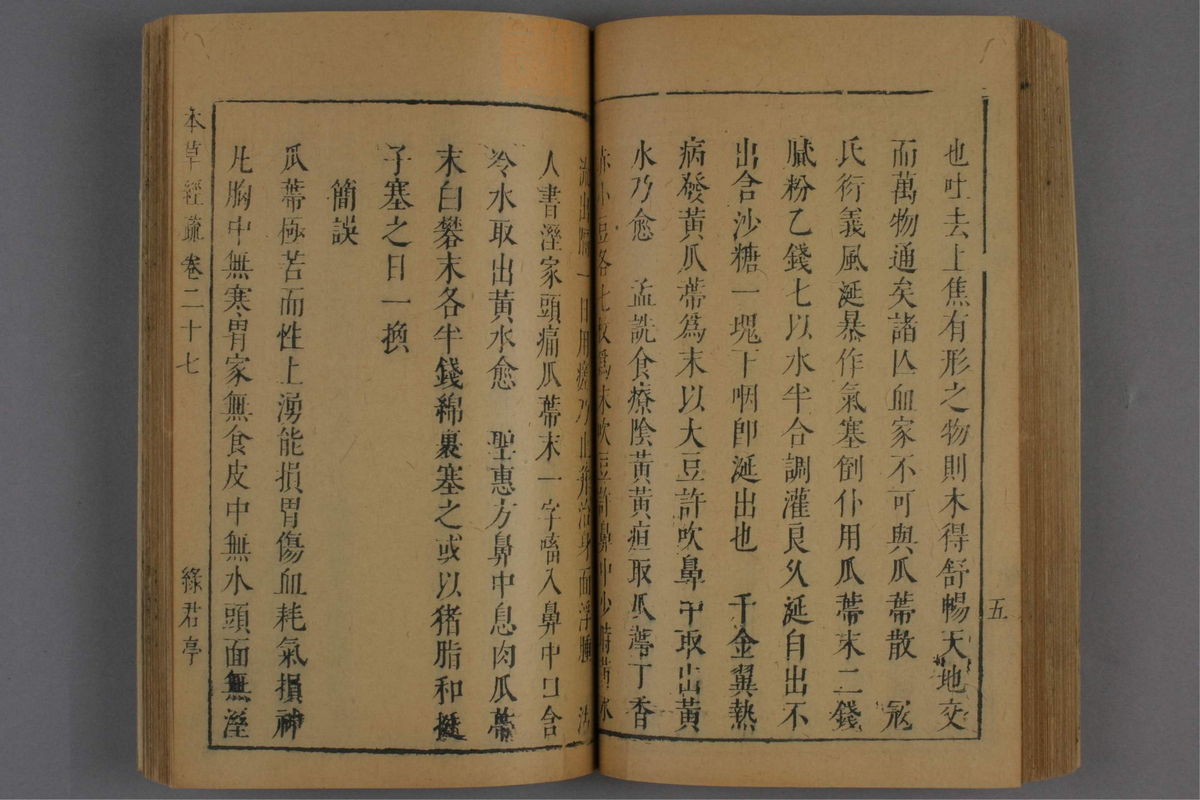 五
也吐去上焦有形之物則木得舒暢天地交
而萬物通矣諸亾血家不可與瓜蒂散 宼
氏衍義風涎暴作氣塞倒仆用瓜蒂末二錢
膩粉乙錢七以水半合調灌良久涎自出不
出含沙糖一塊下咽卽涎出也 千金翼熱
病發黃瓜蒂爲末以大豆許吹鼻中取出黃
水乃愈 孟詵食療陰黃黃疸取瓜蒂丁香
赤小豆各七枚爲末吹豆許鼻中少時黃水
流出隔一日用瘥乃止兼治身面浮腫 活
人書溼家頭痛瓜蒂末一字㗜入鼻中口含
冷水取出黃水愈 聖惠方鼻中息肉瓜蒂
末白礬末各半錢綿裹塞之或以猪脂和挺
子塞之日一換
簡誤
瓜蒂極苦而性上湧能損胃傷血耗氣損神
凡胸中無寒胃家無食皮中無水頭面無溼
本草經疏 卷二十七 綠君亭